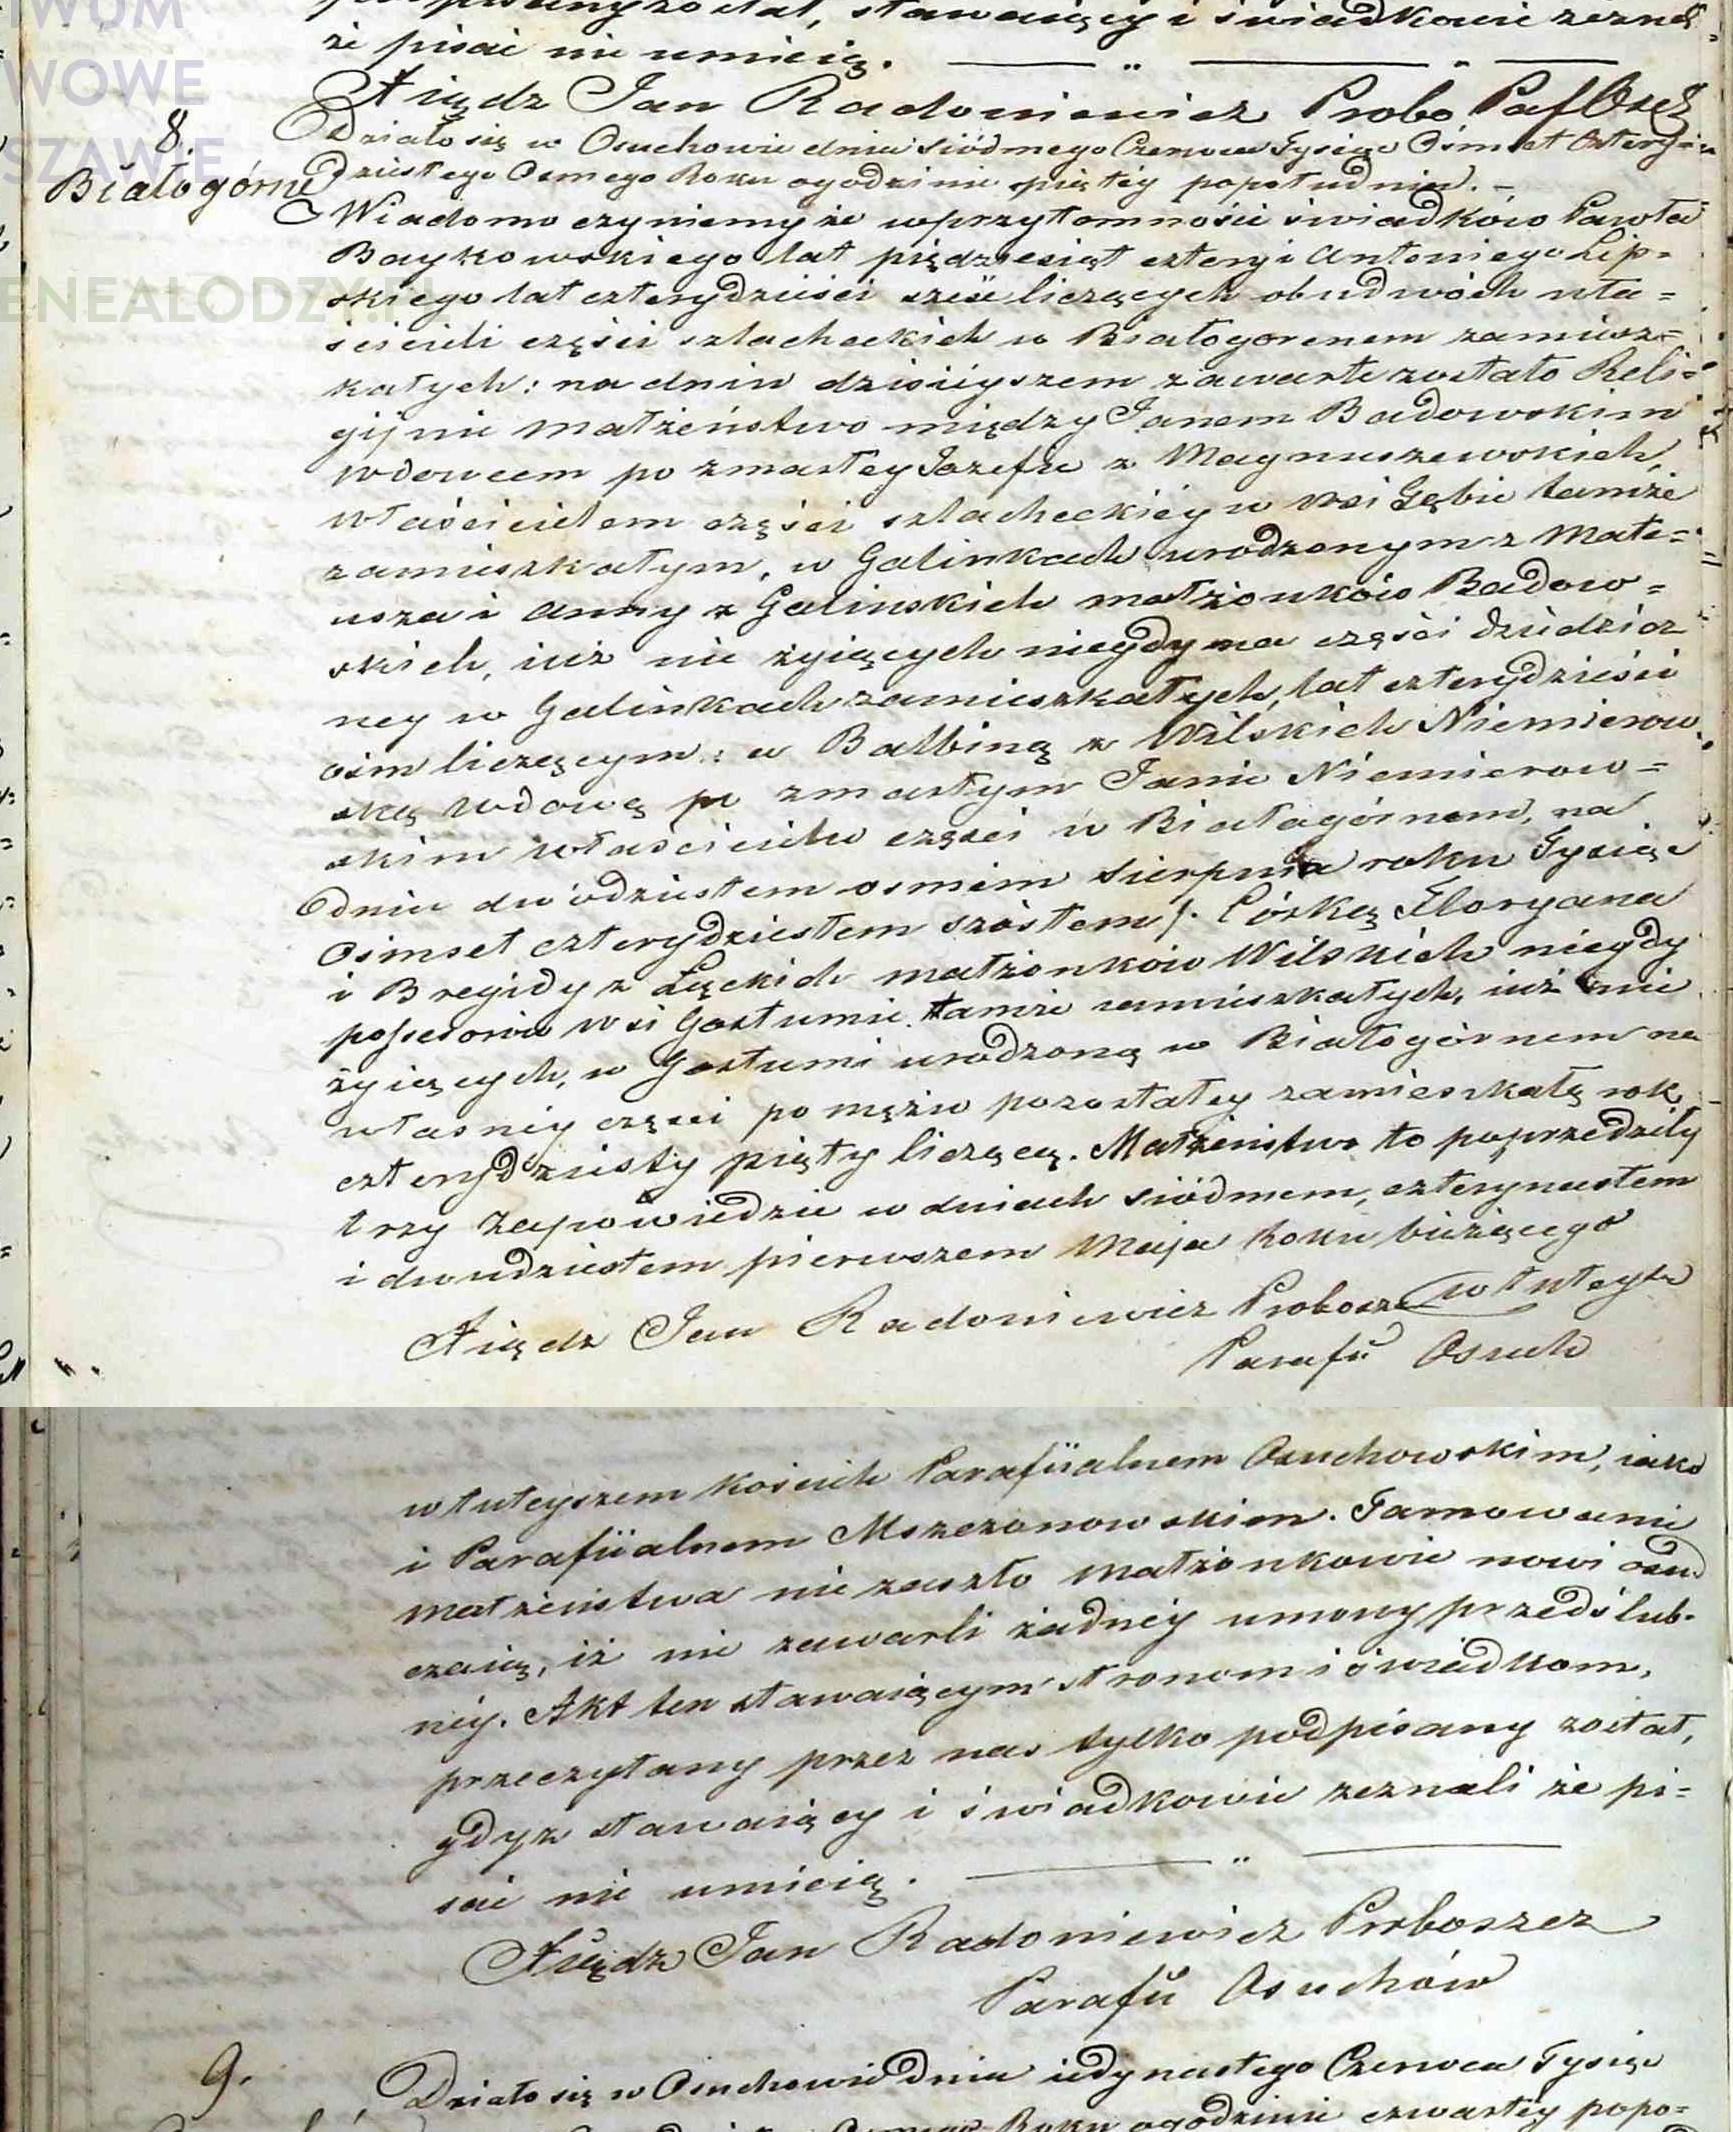 podpisany został, stawaiący i świadkowie zeznali
że pisać nie umieią.
Xiądz Jan Radoniewicz Probo Paf Osuch
8.
Białogórne
Działo się w Osuchowie dnia siódmego Czerwca Tysiąc Ośmset Cztery=
dziestego Osmego Roku ogodzinie piątéy popołudniu. –
Wiadomo czyniemy że wprzytomności świadków Pawła
Baykowskiego lat pięдziesiąt cztery i Antoniego Lip=
skiego lat czterydzieści sześć liczących obudwóch wła=
ścicieli części szlacheckich w Białogórnem zamiesz=
kałych: na dniu dzisieyszem zawarte zostało Reli=
gijnie małżeństwo między Janem Badowskim
wdowcem po zmarłey Józefie z Magnuszewskich,
właścicielem części szlacheckiéy w wsi Gąbie tamże
zamieszkałym, w Galinkach urodzonym z Mate=
usza i Anny z Galinskich małżonków Badow=
skich, iuż nie żyiących niegdy na części dziedzicz
ney w Galinkach zamieszkałych, lat czterydzieści
ośm liczącym: a Balbiną z Wilskich Niemierow
ską wdową po zmarłym Janie Niemierow=
skim właścicielu części w Białagórnem, na
dniu dwódziestem osmem Sierpnia roku Tysiąc
Ośmset czterydziestem szóstem /. Córką Floryana
i Bregidy z Łąckich małżonków Wilskich niegdy
possesorów wsi Gostumie tamże zamieszkałych, iuż nie
żyiących, w Gostumi urodzoną w Białogórnem na
własnéy części po mężu pozostałey zamieszkałą rok
czterydziesty piąty liczącą. Małżeństwo to poprzedziły
trzy Zapowiedzie w dniach siódmem, czternastem
i dwudziestem pierwszem Maja Roku bieżącego
Xiądz Jan Radoniewicz Proboszcz w tuteysz
Parafii Osuch
w tuteyszem Kościele Parafiialnem Osuchowskim, iako
i Parafiialnem Mszczonowskiem. Tamowanie
małżeństwa nie zaszło Małżonkowie nowi oświad
czaią, iż nie zawarli żadnéy umowy przedślub-
néy. Akt ten stawaiącym stronom i świadkom,
przeczytany przez nas tylko podpisany został,
gdyż stawaiący i świadkowie zeznali że pi=
sać nie umieią.
Xiądz Jan Radoniewicz Proboszcz
Parafii Osuchów
9.
Działo się w Osuchowie dnia iedynastego Czerwca Tysiąc
Roku ogodzinie czwartéy popo=